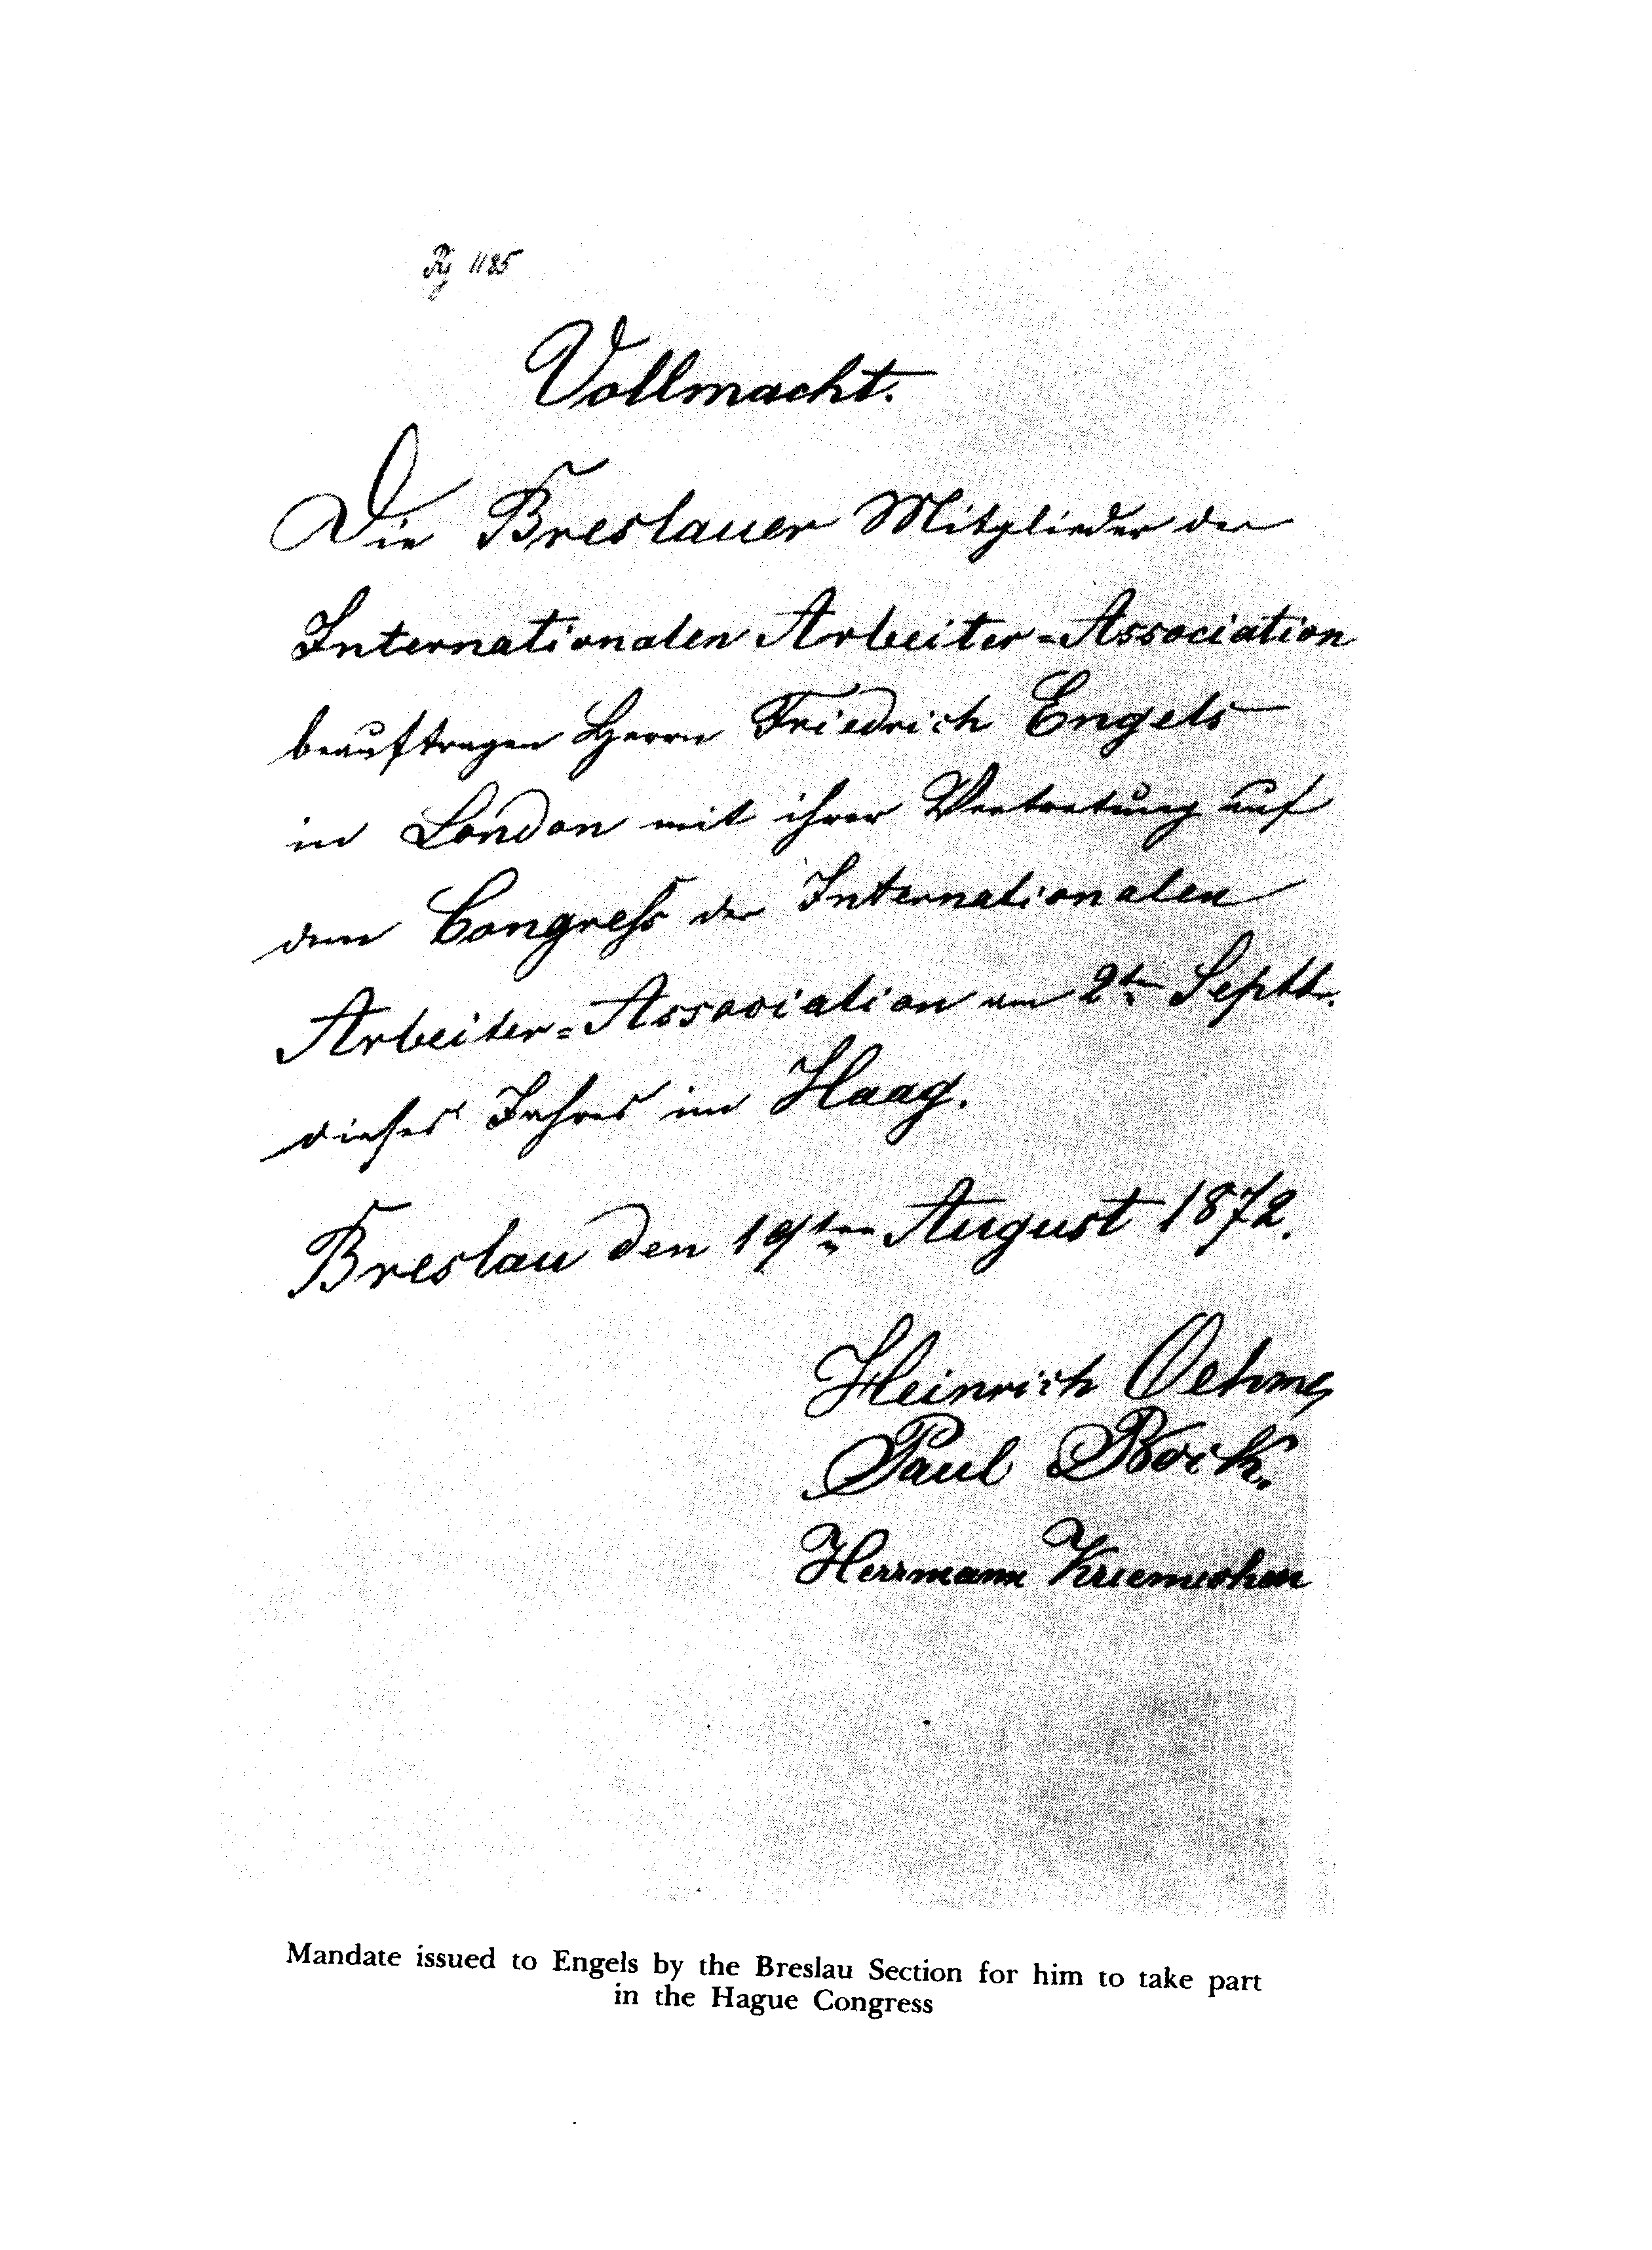 1185
Vollmacht.
Die Breslauer Mitglieder der
Internationalen Arbeiter=Association
beauftragen Herrn Friedrich Engels
in London mit ihrer Vertretung auf
dem Congreß der Internationalen
Arbeiter=Association am 2ten Septbr.
dieses Jahres im Haag.
Breslau den 19ten August 1872.
Heinrich Oehme,
Paul Bock.
Herrmann
Mandate issued to Engels by the Breslau Section for him to take part
in the Hague Congress